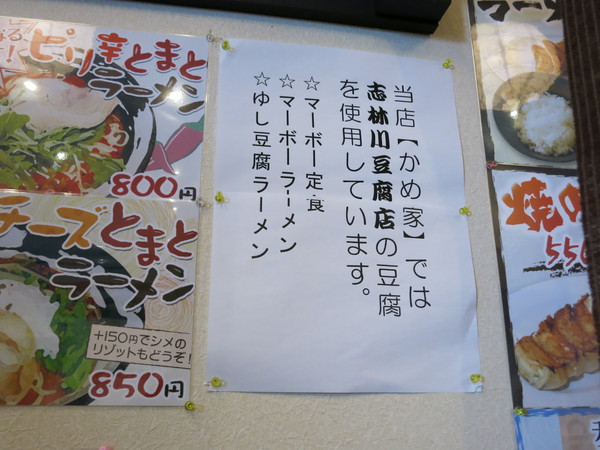 ピリ辛とまと
ラーメン
800円
チーズとまと
ラーメン
+150円でシメの
リゾットもどうぞ!
850円
当店【かめ家】では
志林川豆腐店の豆腐
を使用しています。
☆マーボー定食
☆マーボーラーメン
☆ゆし豆腐ラーメン